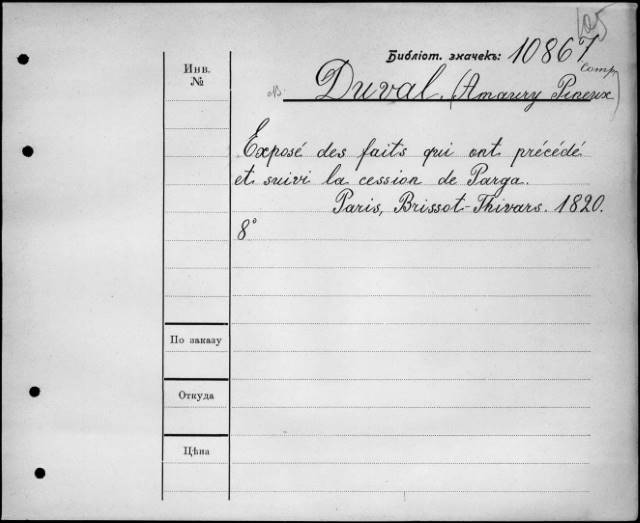 105
Библіот. значекъ: 10867
Comp.
Инв.
№
Duval. (Amaury Pineux)
Exposé des faits qui ont précédé
et suivi la cession de Parga.
Paris, Brissot-Thivars. 1820.
8°
По заказу
Откуда
Цѣна